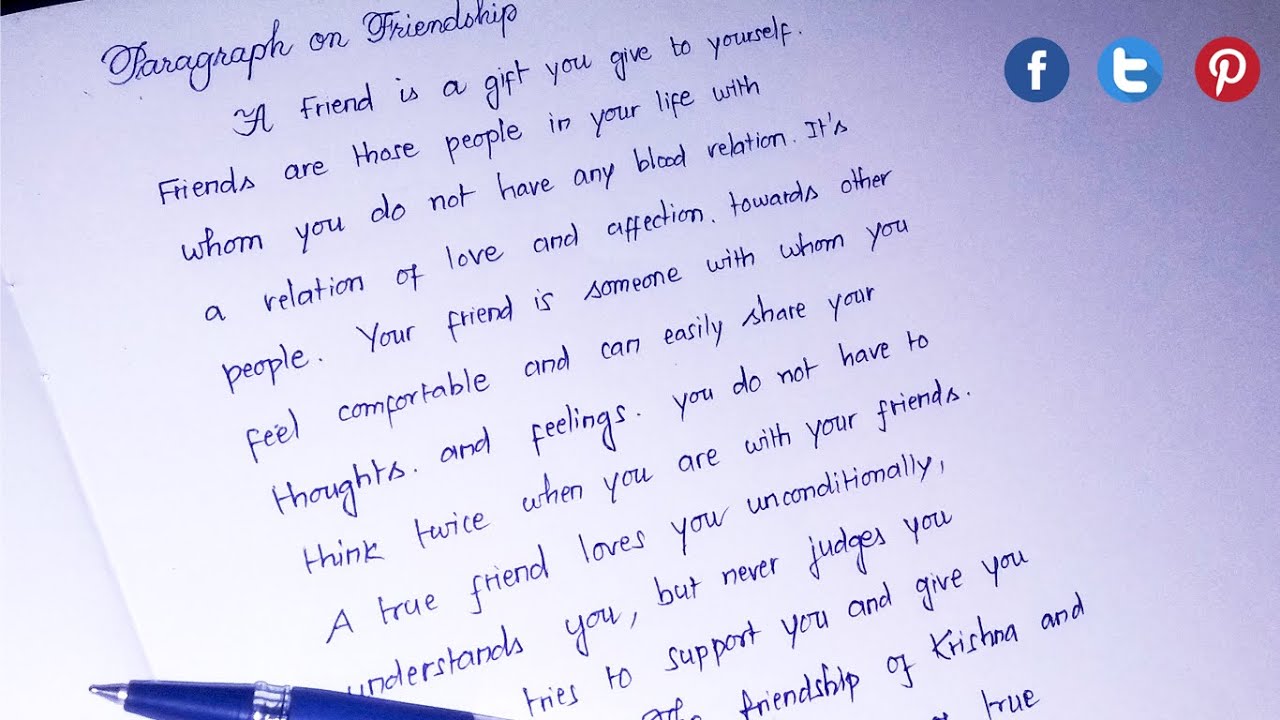 Paragraph on Friendship
A friend is a gift you give to yourself.
Friends are those people in your life with
whom you do not have any blood relation. It's
a relation of love and affection. towards other
people. Your friend is someone with whom you
feel comfortable and can easily share your
thoughts. and feelings. you do not have to
think twice when you are with your friends.
A true friend loves you unconditionally,
understands you, but never judges you
tries to support you and give you
friendship of Krishna and
true